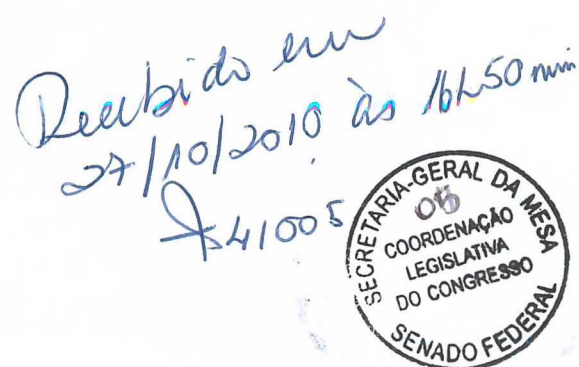 Recebido em
27/10/2010 às 16h50min
41005
SECRETARIA-GERAL DA MESA
COORDENAÇÃO
LEGISLATIVA
DO CONGRESSO
SENADO FEDERAL